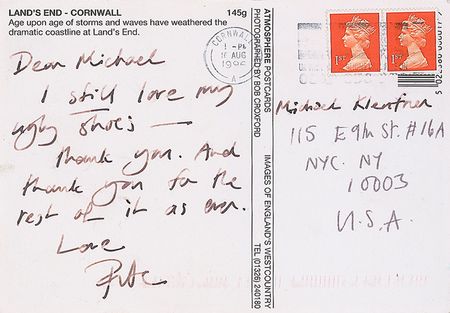 LAND'S END - CORNWALL 145g
Age upon age of storms and waves have weathered the
dramatic coastline at Land's End.
Dear Michael
I still love my
ugly shoes —
Thank you. And
thank you for the
rest of it as ever.
Love
ATMOSPHERE POSTCARDS
PHOTOGRAPHED BY BOB CROXFORD
IMAGES OF ENGLAND'S WESTCOUNTRY
TEL (01326) 240180
CORNWALL
1 - PM
AUG
A
1ST
1ST
Michael
115 E 9th St. #16A
NYC. NY
10003
U.S.A.